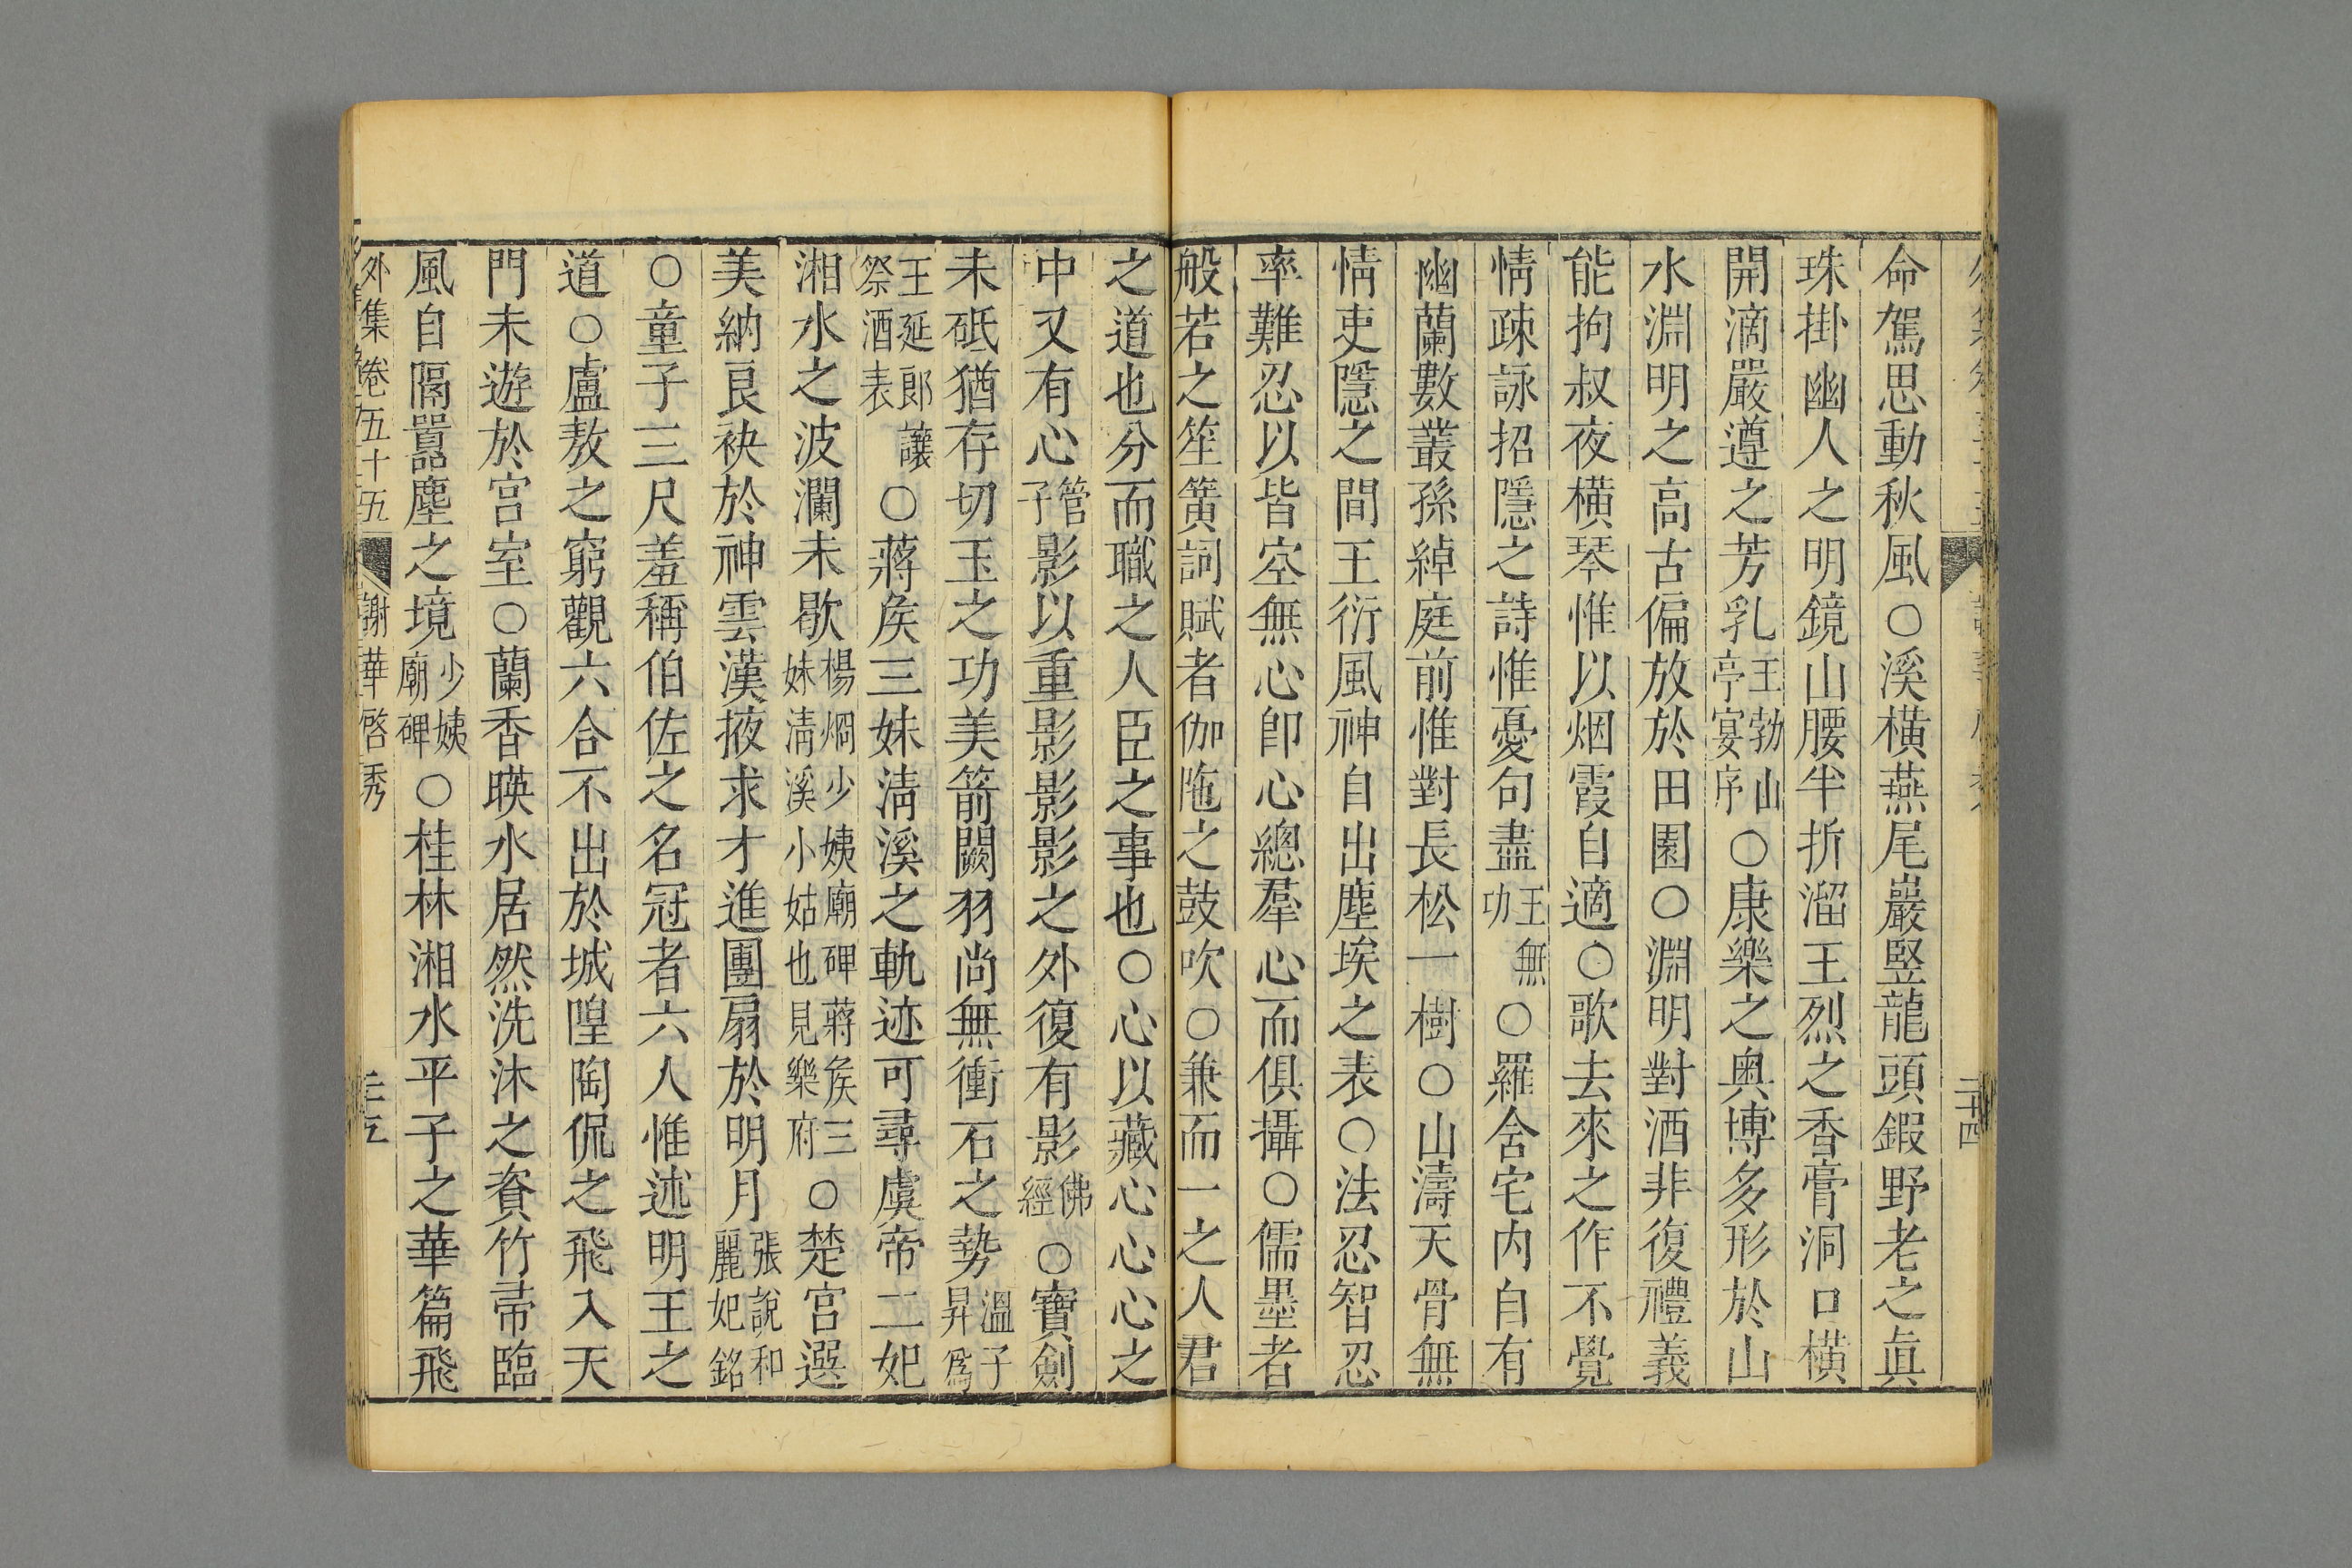 命駕思動秋風○溪橫燕尾巖竪龍頭鍜野老之眞
珠掛幽人之明鏡山腰半折溜王烈之香膏洞口橫
開滴嚴遵之芳乳王勃山亭宴序○康樂之奥博多形於山
水淵明之高古偏放於田園○淵明對酒非復禮義
能拘叔夜橫琴惟以烟霞自適○歌去來之作不覺
情疎詠招隱之詩惟憂句盡王無功○羅含宅内自有
幽蘭數叢孫綽庭前惟對長松一樹○山濤天骨無
情吏隱之間王衍風神自出塵埃之表○法忍智忍
率難忍以皆空無心卽心總羣心而俱攝○儒墨者
般若之笙簧詞賦者伽陁之鼓吹○兼而一之人君
之道也分而職之人臣之事也○心以藏心心心之
中又有心管子影以重影影影之外復有影佛經○寶劍
未砥猶存切玉之功美箭闕羽尚無衝石之勢溫子昇爲
王延郎讓祭酒表○蔣矦三妹淸溪之軌迹可尋虞帝二妃
湘水之波瀾未歇楊烱少姨廟碑蔣矦三妹淸溪小姑也見樂府○楚宮選
美納良袂於神雲漢掖求才進團扇於明月張說和麗妃銘
○童子三尺羞稱伯佐之名冠者六人惟述明王之
道○盧敖之窮觀六合不出於城隍陶侃之飛入天
門未遊於宮室○蘭香暎水居然洗沐之資竹帚臨
風自隔囂塵之境少姨廟碑○桂林湘水平子之華篇飛
外集卷五十五 謝華啓秀